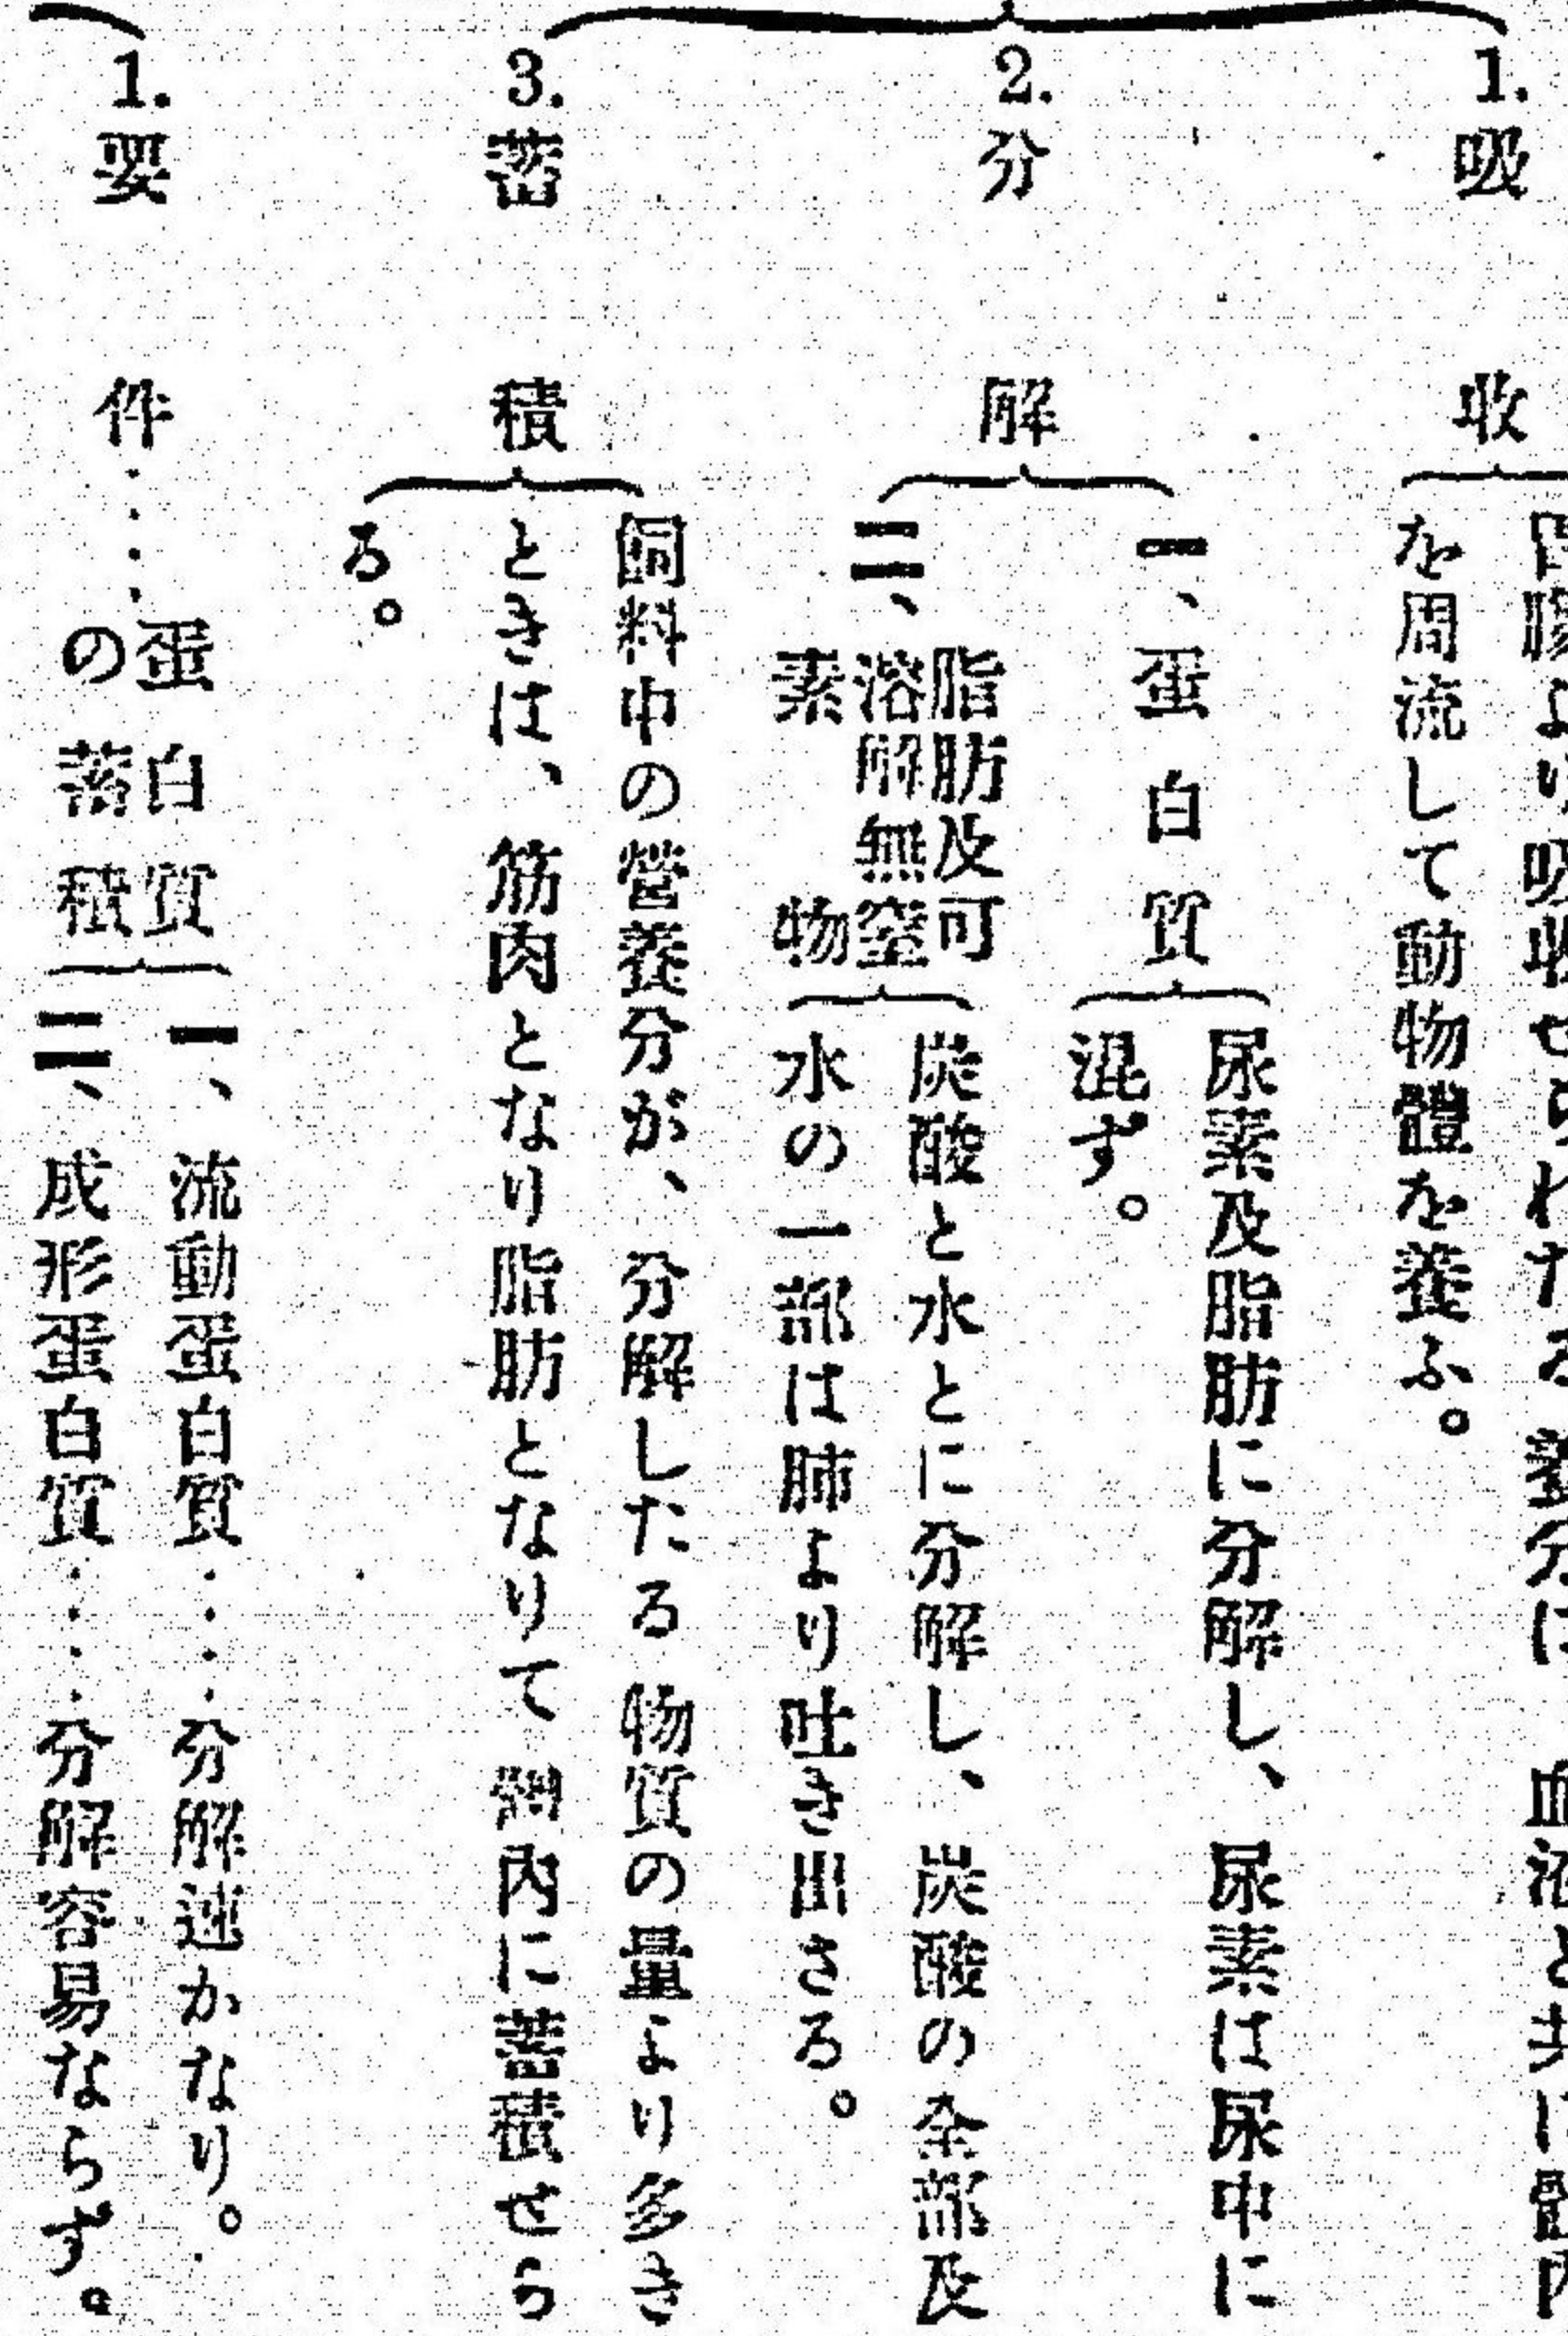 1.吸收
胃腸より吸收せられたる養分は血液と共に體内
を周流して動物體を養ふ。
2.分解
一、蛋白質
尿素及脂肪に分解し、尿素は尿中に
混ず。
二、脂肪及可
溶解無窒
素物
炭酸と水とに分解し、炭酸の全部及
水の一部は肺より吐き出さる。
3.蓄積
飼料中の營養分が、分解したる物質の量より多き
ときは、筋肉となり脂肪となりて體内に蓄積せら
る。
1.要件……蛋白質
の蓄積
一、流動蛋白質……分解速かなり。
二、成形蛋白質……分解容易ならず。